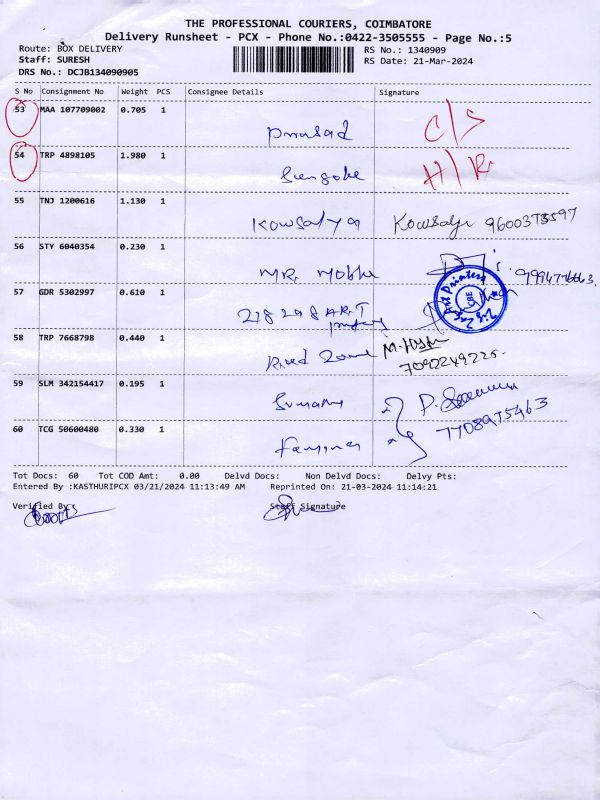 THE PROFESSIONAL COURIERS, COIMBATORE
Delivery Runsheet - PCX - Phone No.:0422-3505555 - Page No.:5
Route: BOX DELIVERY
RS No.: 1340909
Staff: SURESH
RS Date: 21-Mar-2024
DRS No.: DCJB134090905
S No Consignment No Weight PCS Consignee Details Signature
53 MAA 107709002 0.705 1
Prasad C/S
54 TRP 4898105 1.980 1
H/R
55 TNJ 1200616 1.130 1
Kowsalya Kowsalya 9600373597
56 STY 6040354 0.230 1
MR.
57 GDR 5302997 0.610 1
Zig Zag ART
58 TRP 7668798 0.440 1
Zone 7092249225
59 SLM 342154417 0.195 1
60 TCG 50600480 0.330 1
7708975463
Tot Docs: 60 Tot COD Amt: 0.00 Delvd Docs: Non Delvd Docs: Delvy Pts:
Entered By :KASTHURIPCX 03/21/2024 11:13:49 AM Reprinted On: 21-03-2024 11:14:21
Verified By Staff Signature